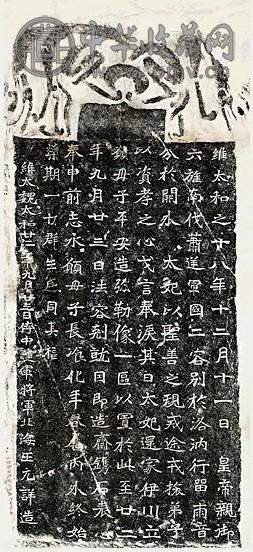 中华收藏网
維太和之十八年十二月十一日皇帝親御
六旌南伐蕭逆軍國二容別於洛汭行留兩音
分於闕外太妃以聖善之規戒途戒旅弟子
以資孝之心戈言奉淚其日太妃還家伊川立
願母子平安造弥勒像一區以置於此至廿二
年九月廿三日法容剋就因即造齋鐫石表心
奉申前志永願母子長瘳化年眷屬內外終始
榮期一切群生咸同其福
維大魏太和廿二年九月廿三日侍中護軍將軍北海王元詳造